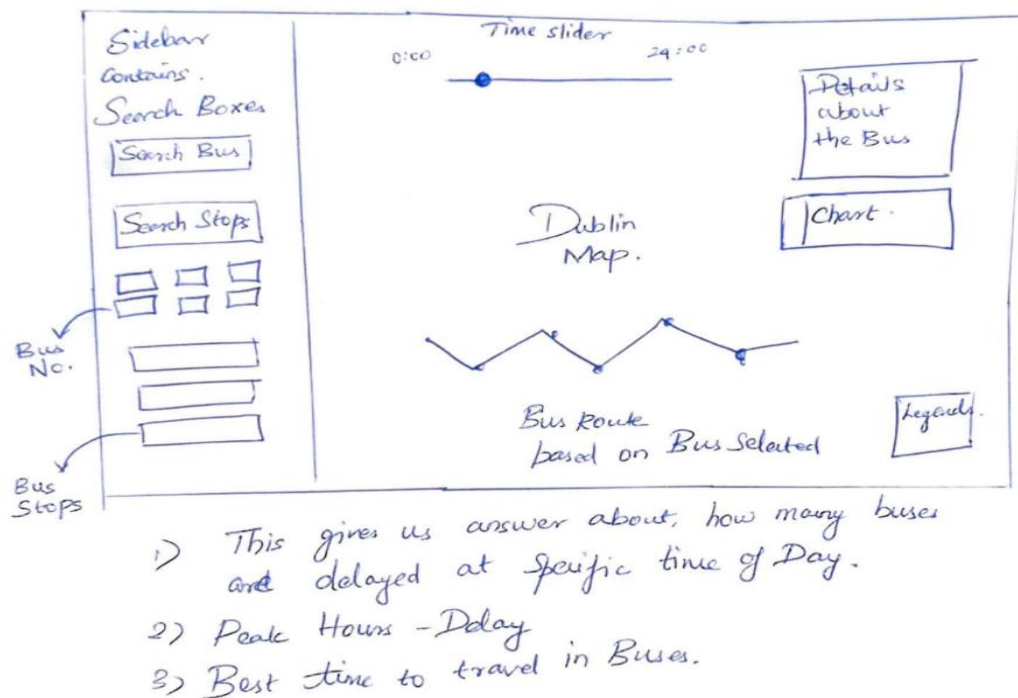 Sidebar
Contains.
Search Boxes
Search Bus
Search Stops
Bus
No.
Bus
Stops
Time slider
0:00
24:00
Dublin
Map.
Bus Route
based on Bus Selected
Details
about
the Bus
Chart.
Legends.
1) This gives us answer about, how many buses
are delayed at specific time of Day.
2) Peak Hours - Delay
3) Best time to travel in Buses.